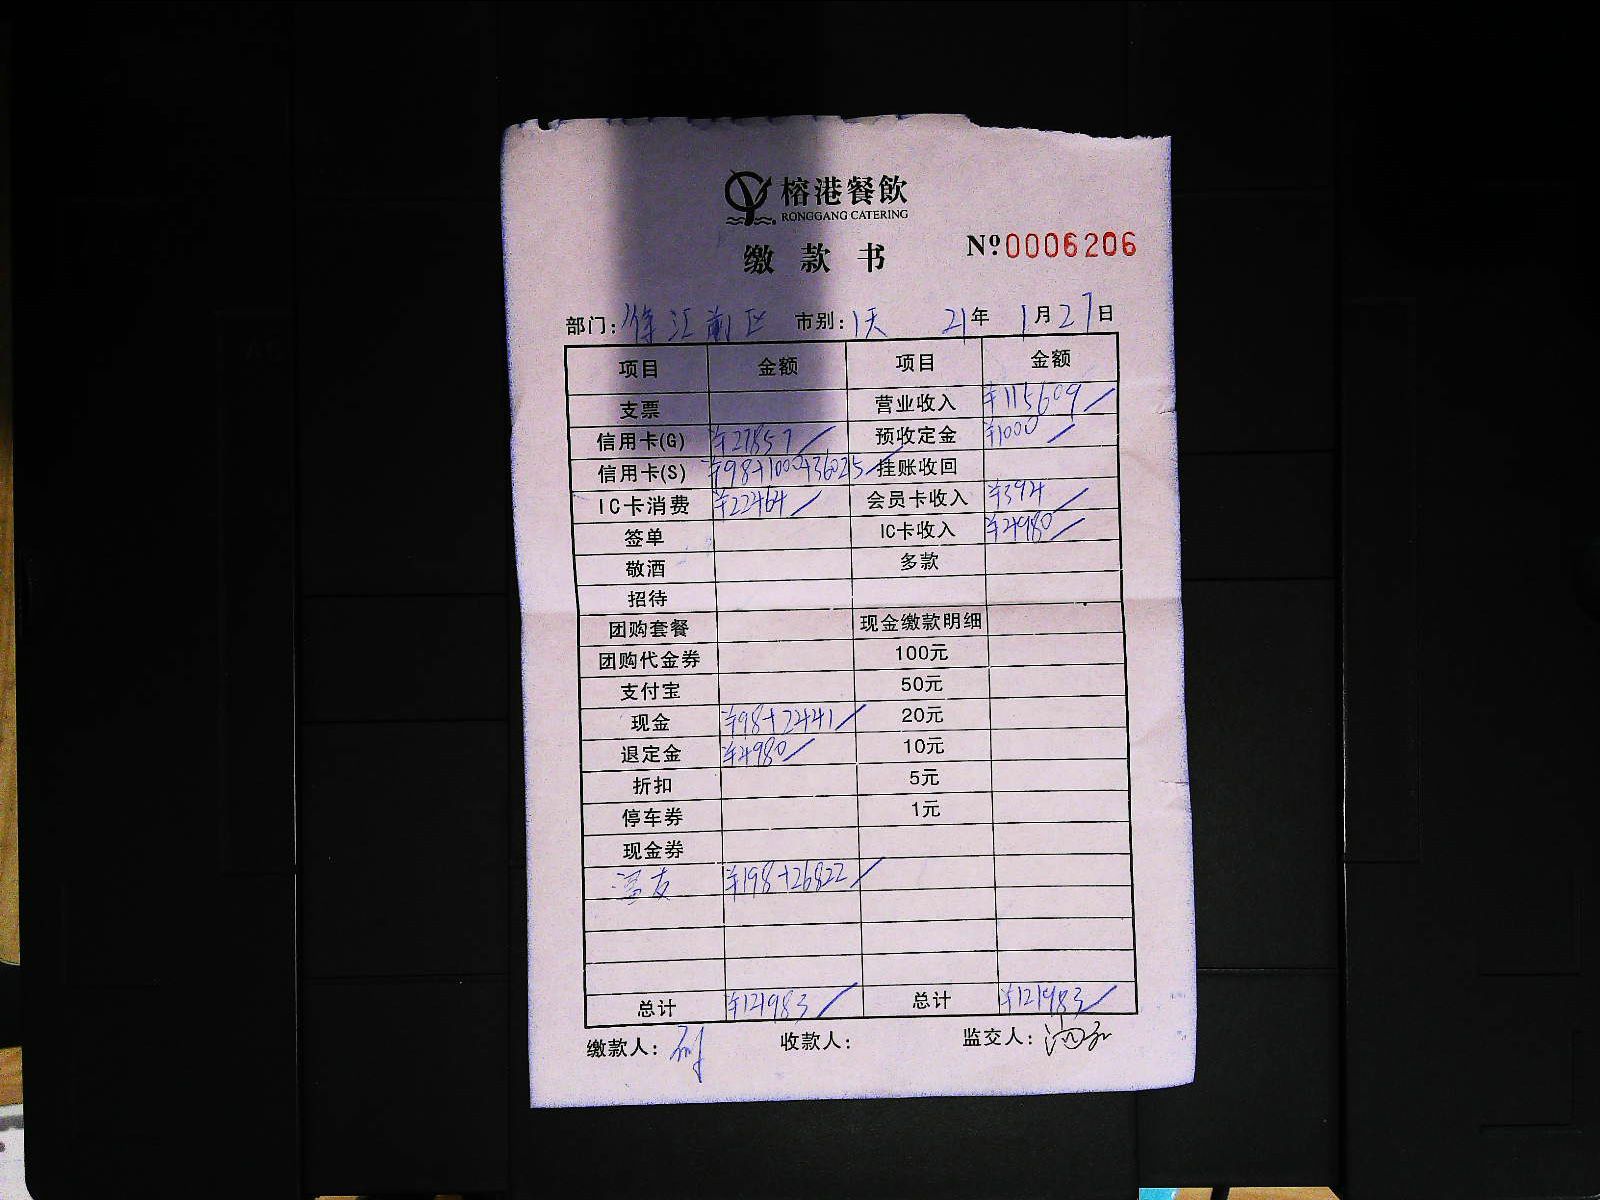 榕港餐飲
RONGGANG CATERING
缴款书 Nº0006206
部门: 徐汇前区 市别: 1天 21年 1月27日
项目 金额 项目 金额
支票 营业收入 ¥115609
信用卡(G) ¥27857 预收定金 ¥1000
信用卡(S) ¥98+1000+36025 挂账收回
IC卡消费 ¥22464 会员卡收入 ¥394
签单 IC卡收入 ¥4980
敬酒 多款
招待
团购套餐 现金缴款明细
团购代金券 100元
支付宝 50元
现金 ¥98+2441 20元
退定金 ¥4980 10元
折扣 5元
停车券 1元
现金券
¥198+26822
总计 ¥121983 总计 ¥121983
缴款人: 收款人: 监交人: